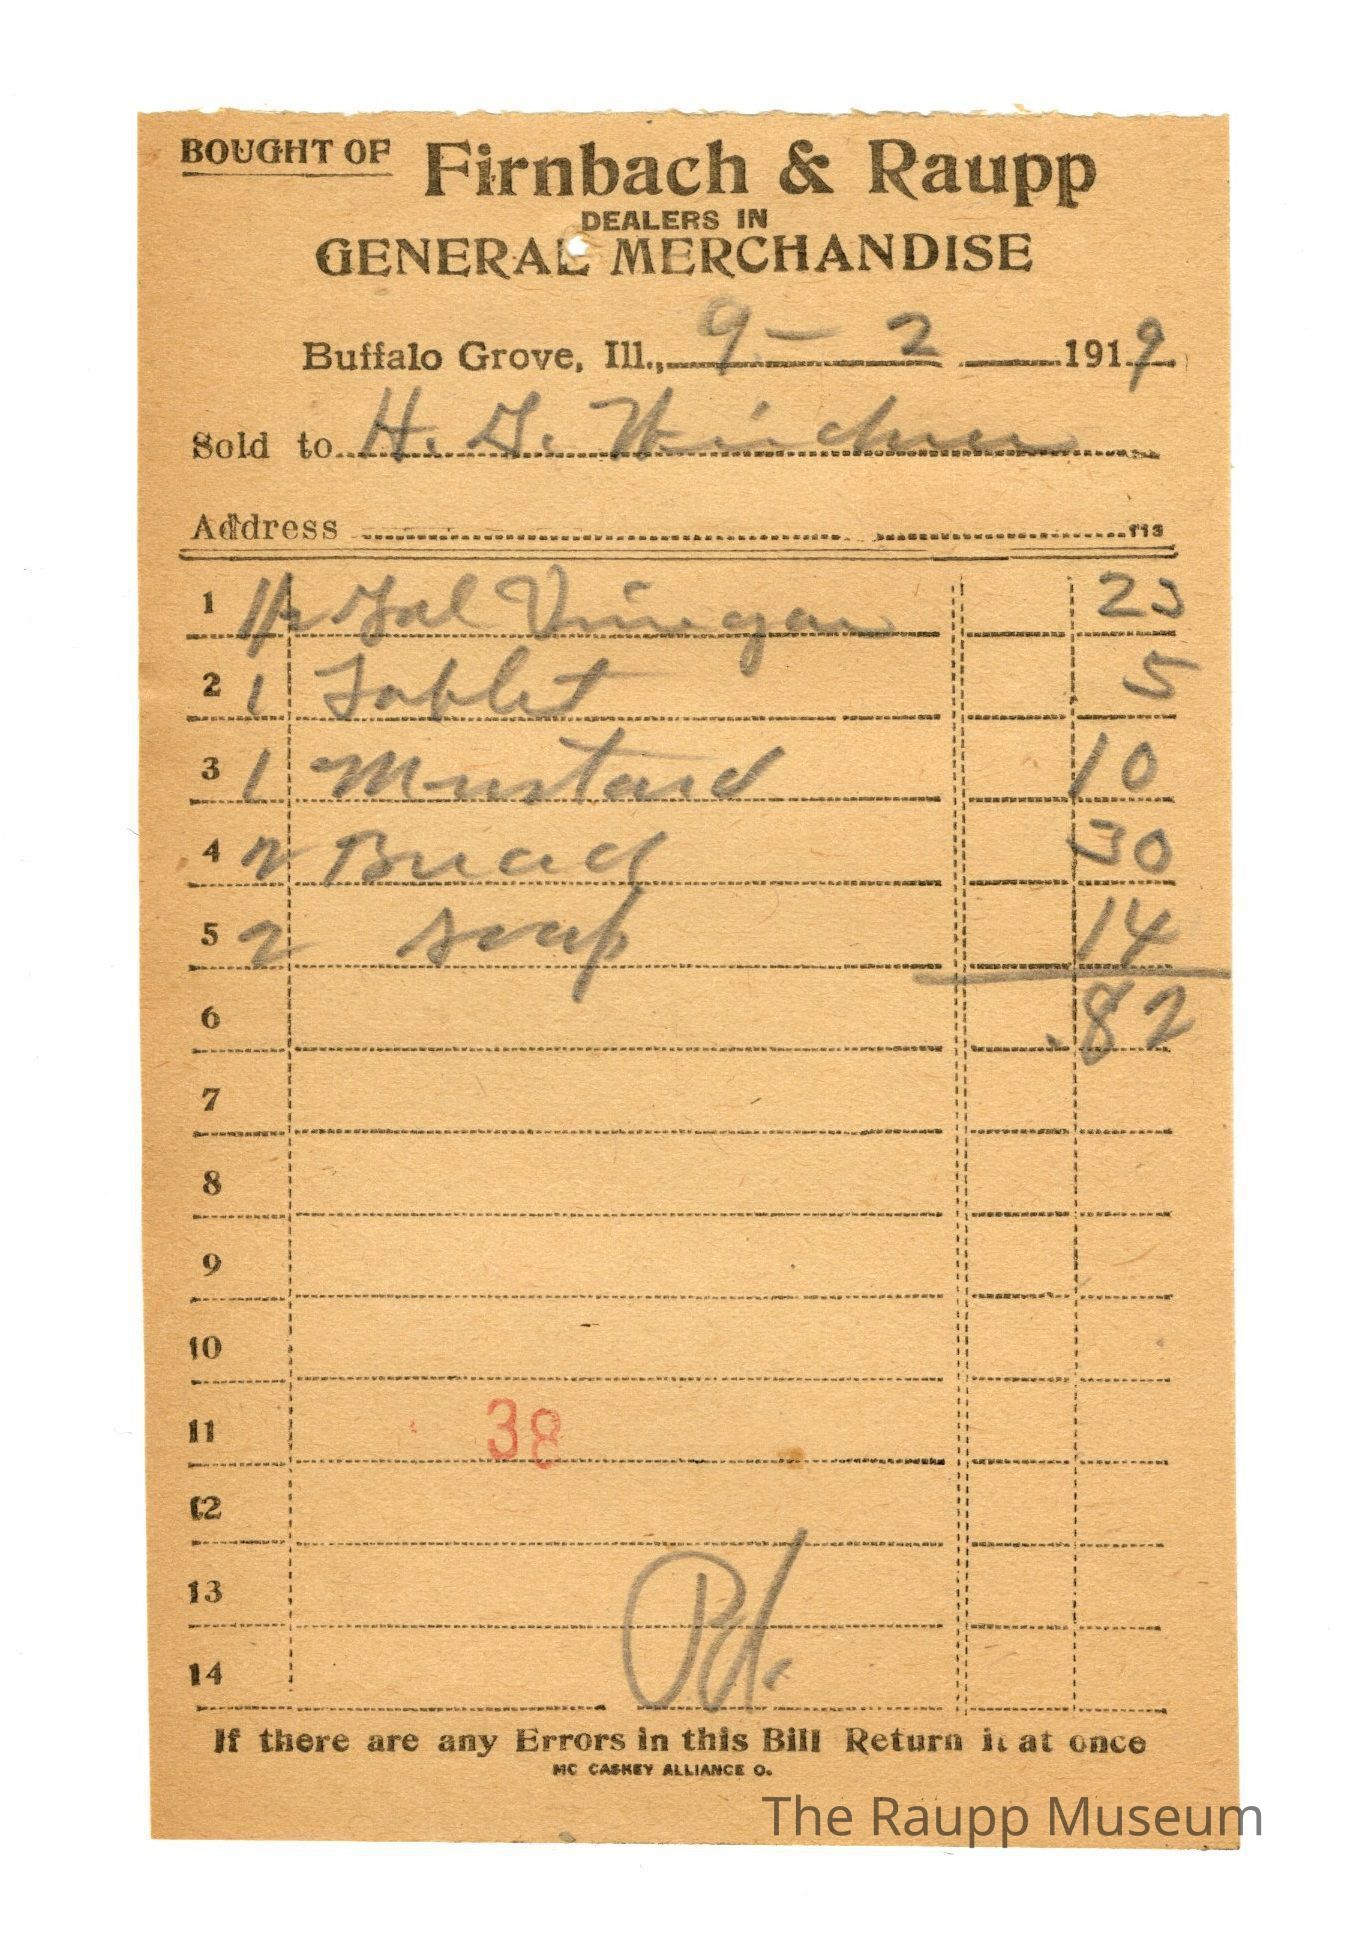 BOUGHT OF Firnbach & Raupp
DEALERS IN
GENERAL MERCHANDISE
Buffalo Grove, Ill., 9 - 2 1919
Sold to H. G.
Address 113
1 Gal Vinegar 23
2 1 Tablet 5
3 1 Mustard 10
4 2 Bread 30
5 2 soap 14
6 .82
7
8
9
10
11 38
12
13
14 Pd.
If there are any Errors in this Bill Return it at once
MC CASKEY ALLIANCE O.
The Raupp Museum